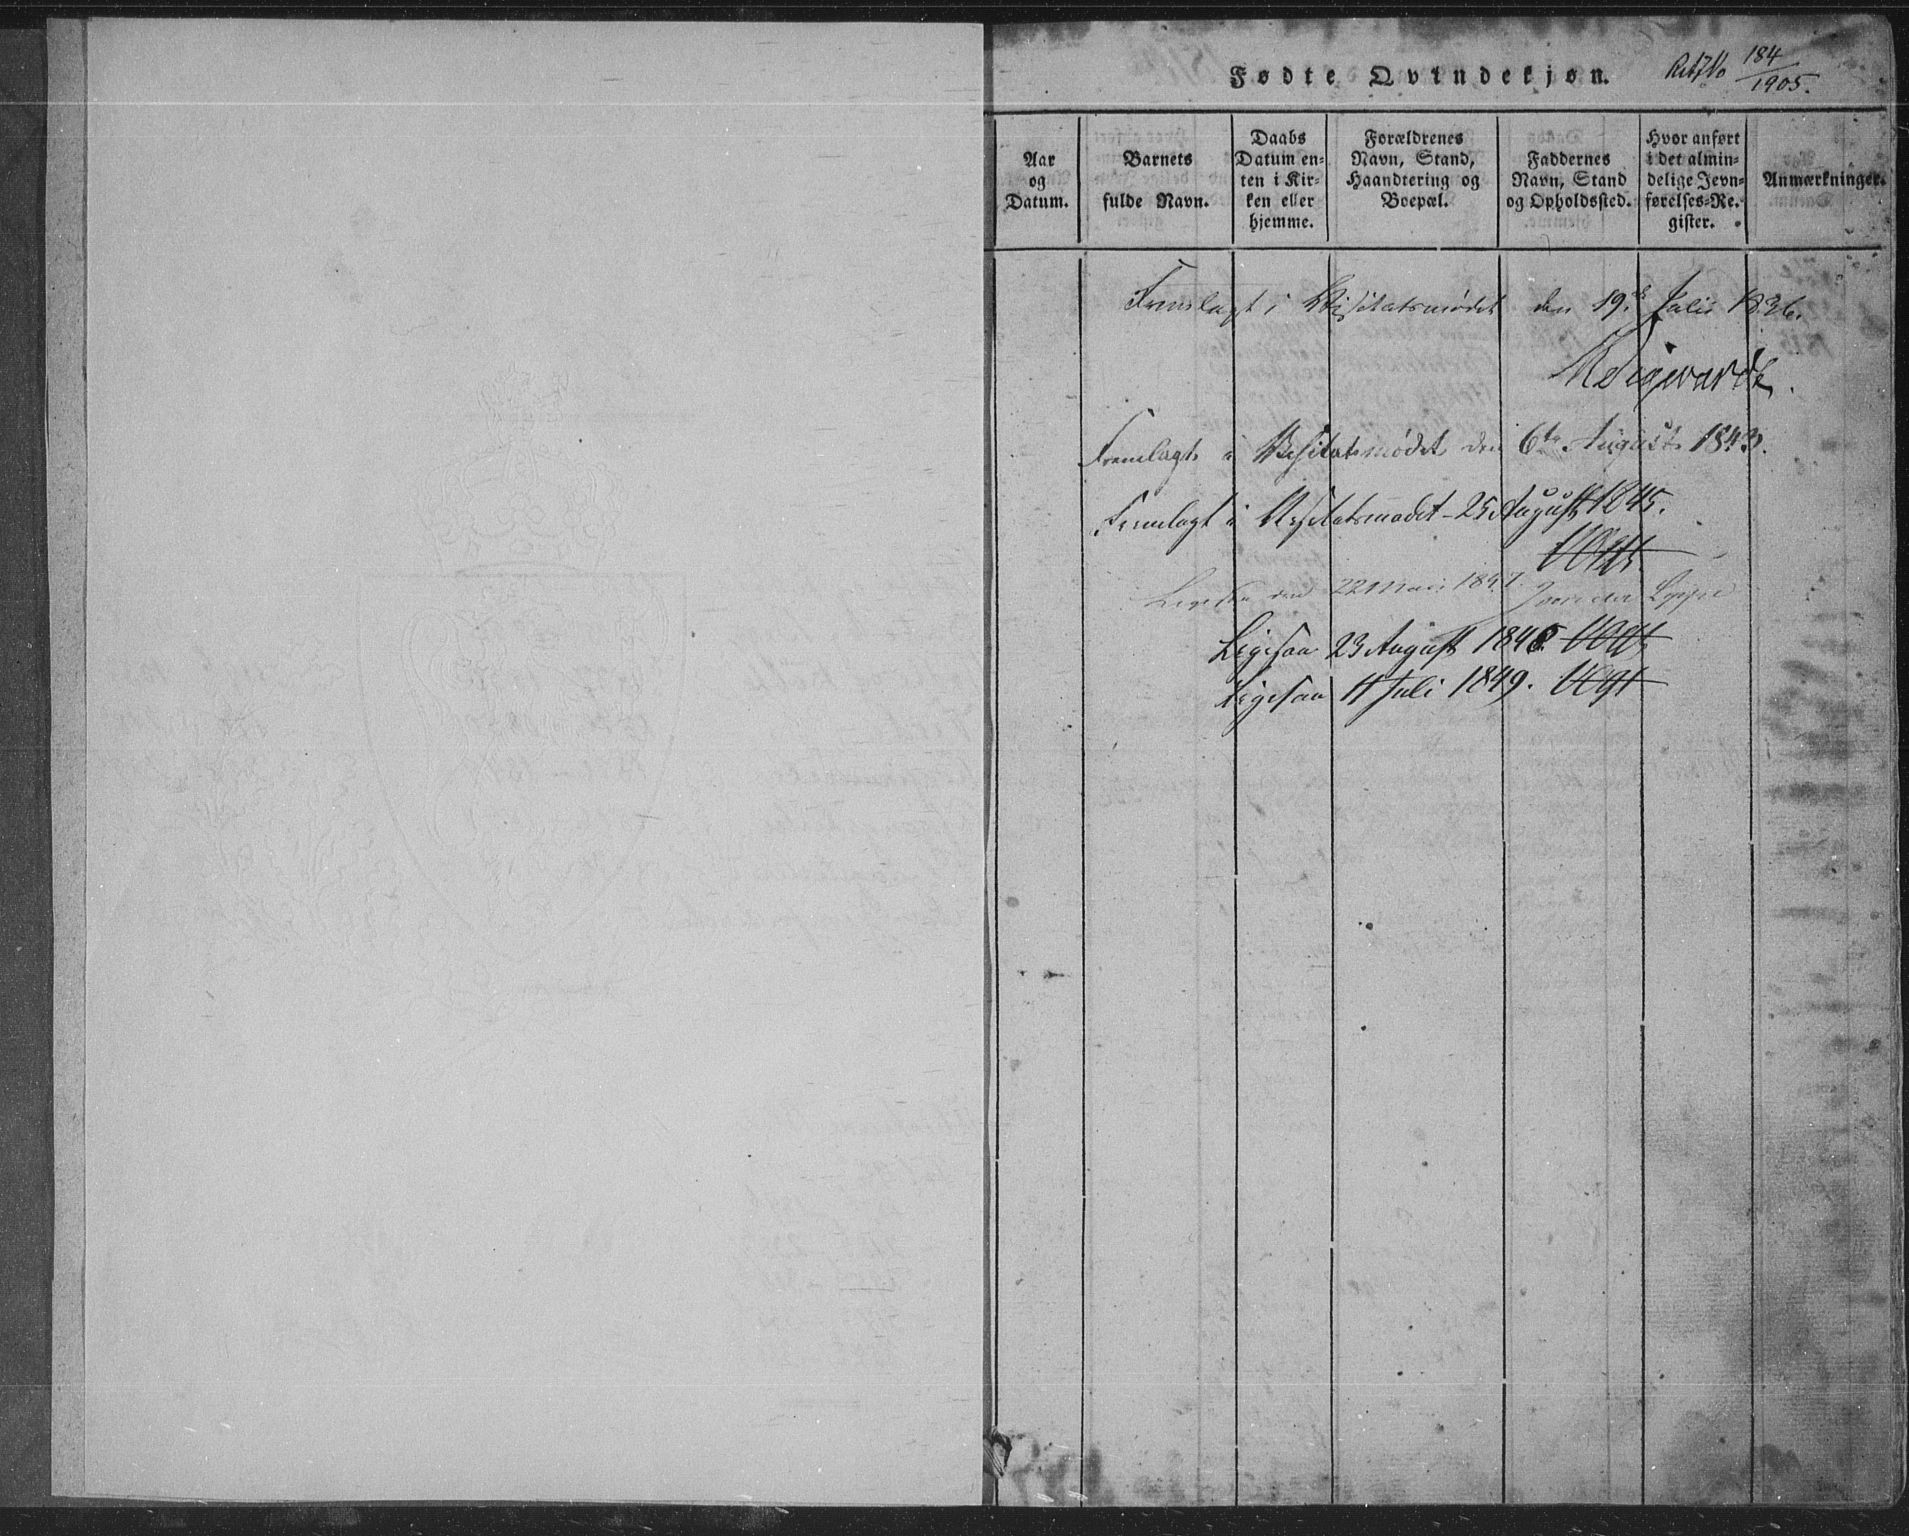 Fødte Qvindekjøn.
184
1905.
Aar
og
Datum.
Barnets
fulde Navn.
Daabs
Datum en-
ten i Kir-
ken eller
hjemme.
Forældrenes
Navn, Stand,
Haandtering og
Boepæl.
Faddernes
Navn, Stand
og Opholdssted.
Hvor anført
i det almin-
delige Jevn-
førelses-Re-
gister.
Anmærkninger.
Fremlagt i Visitatsmødet den 19de Julii 1836.
MSigwardt.
Fremlagt i Visitatsmødet den 6te August 1843.
Fremlagt i Visitatsmødet 25 August 1845.
Vogt
22 Mai 184
Ligesaa 23 August 1846 Vogt
Ligesaa 11 Juli 1849. Vogt